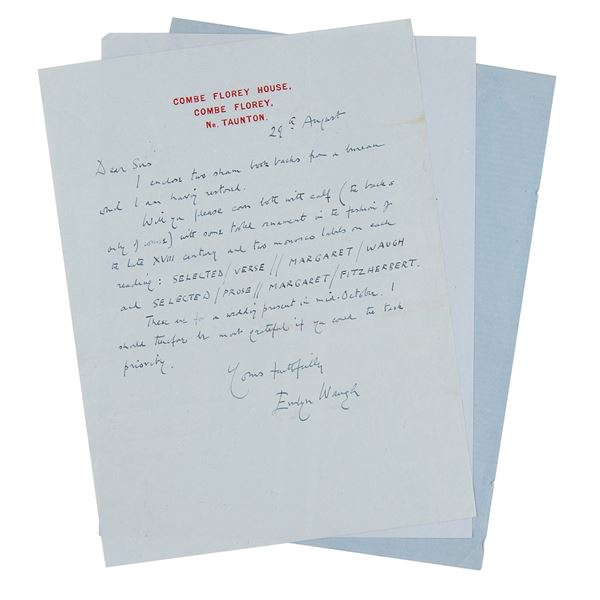 COMBE FLOREY HOUSE,
COMBE FLOREY,
Nr. TAUNTON.
29th August
Dear Sirs
I enclose two sham book backs from a bureau
which I am having restored.
Will you please cover both with calf (the backs
only of course) with some tooled ornament in the fashion of
the late XVIII century and two morocco labels on each
reading: SELECTED/VERSE // MARGARET/WAUGH
and SELECTED/PROSE // MARGARET/FITZHERBERT.
These are for a wedding present in mid-October. I
should therefore be most grateful if you could the task
priority.
Yours faithfully
Evelyn Waugh